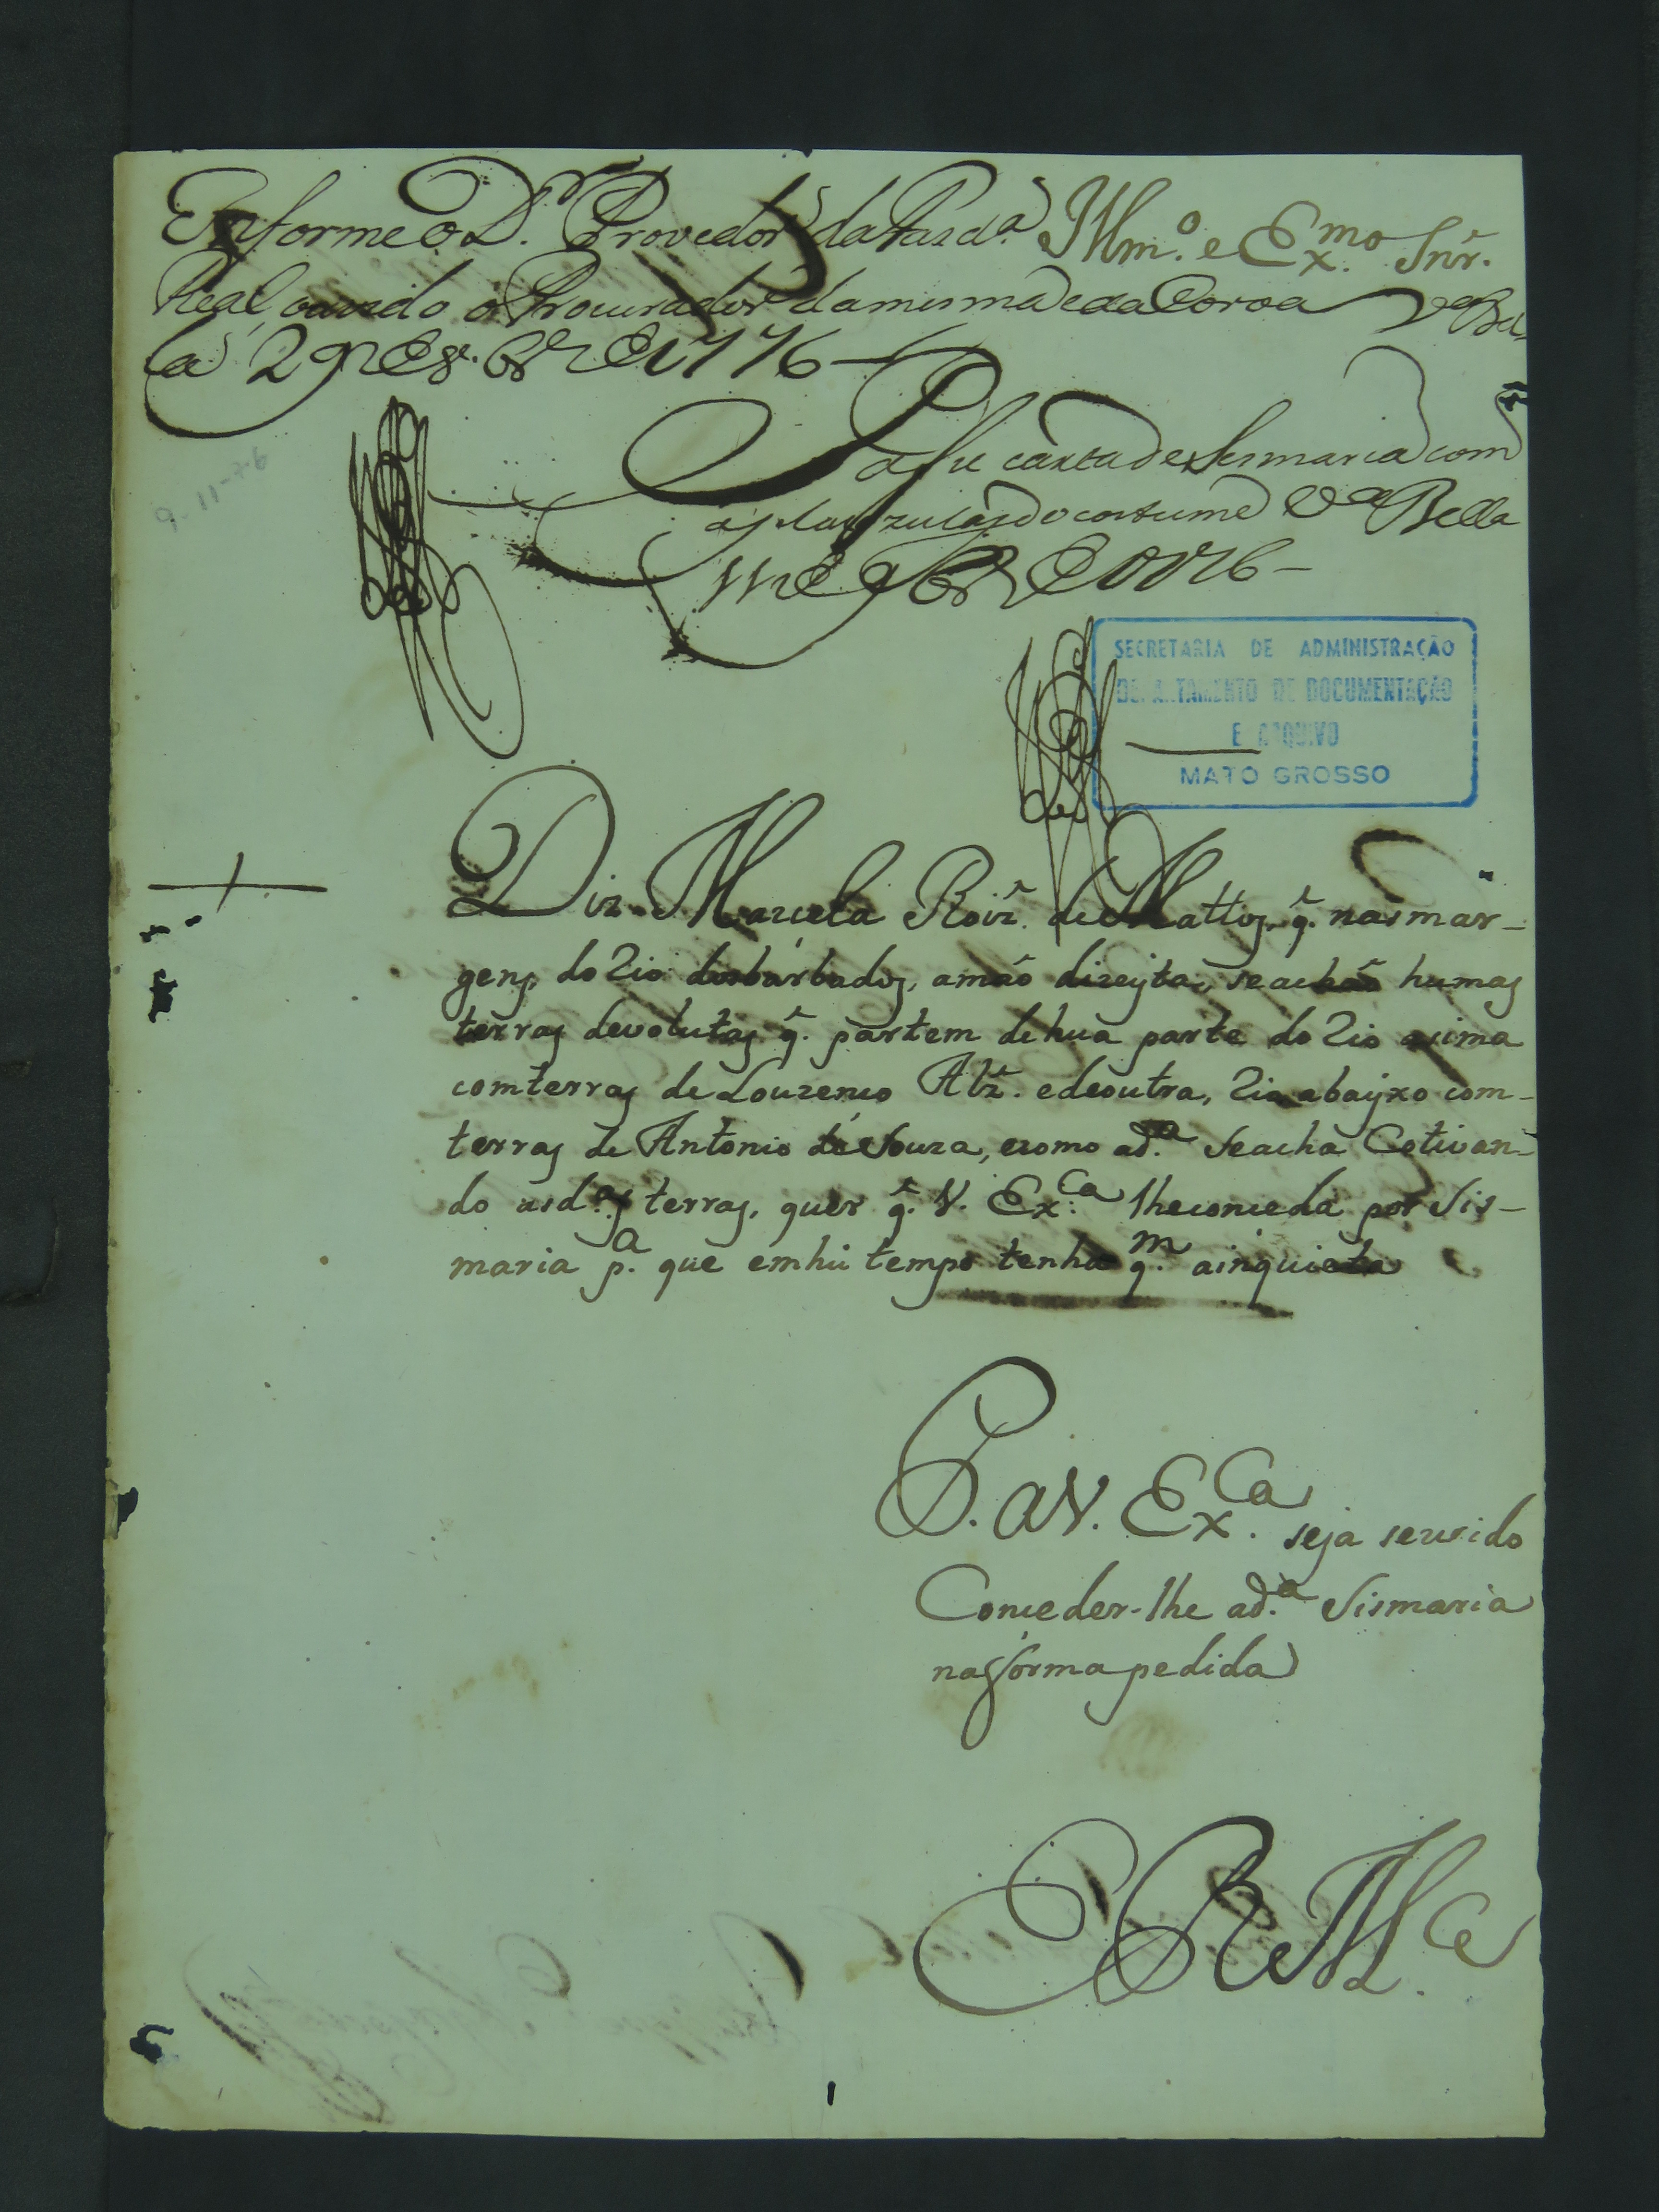 Informe o D.or Provedor da Fazd.a
Illm.o e Ex.mo Snr.
Real, ouvido o Procurador da mesma e da Coroa V.a Bel
la 29 de 8.bro de 1776
Passe carta de Sesmaria com
as clauzulas do costume V.a Bella
11 de 9.bro de 1776
9-11-76
SECRETARIA DE ADMINISTRAÇÃO
DEPARTAMENTO DE DOCUMENTAÇÃO
E ARQUIVO
MATO GROSSO
Diz Marcela Roiz. de Mattos, q. nas mar-
gens do Rio dos barbados, a mão direyta, se achão humas
terras devolutas q. partem de hua parte do Rio asima
com terras de Lourenco Alz. e de outra, Rio abayxo com
terras de Antonio de Souza, e como a d.a se acha Cotivan-
do as d.as terras, quer q. V. Ex.ca lhe conceda por Sis-
maria p.a que em hu tempo tenha q.m a inquieta
P. a V. Ex.ca seja servido
Conceder-lhe a d.a Sismaria
na forma pedida
E R M.ce